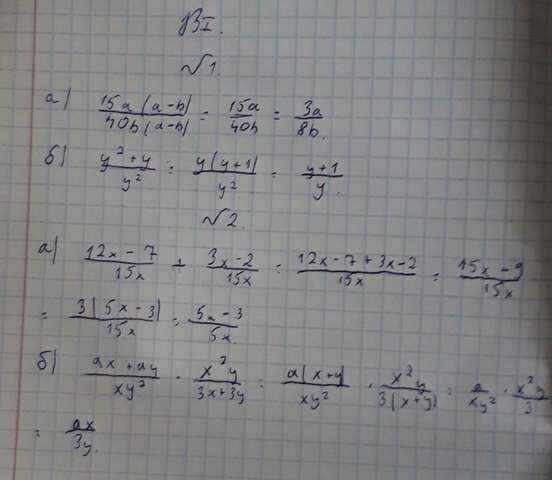 ВI.
№1.
а) 15a(a-b)/40b(a-b) = 15a/40b = 3a/8b.
б) y²+y/y² = y(y+1)/y² = y+1/y.
№2.
а) 12x-7/15x + 3x-2/15x = 12x-7+3x-2/15x = 15x-9/15x
= 3(5x-3)/15x = 5x-3/5x
б) ax+ay/xy² · x²y/3x+3y = a(x+y)/xy² · x²y/3(x+y) = a/xy² · x²y/3
= ax/3y.